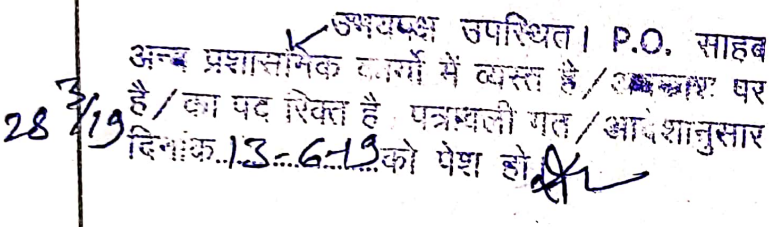 उभयपक्ष उपस्थित। P.O. साहब
अन्य प्रशासनिक कार्यो में व्यस्त है/अवकाश पर
28/3/19 है/का पद रिक्त है पत्रावली गत/आदेशानुसार
दिनांक..13-6-19..को पेश हो